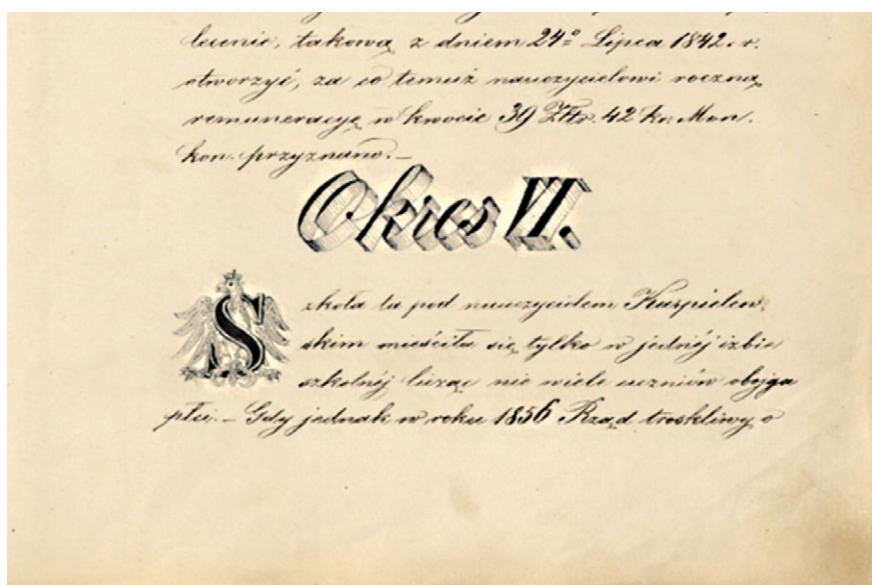 lecenie, takową z dniem 24º Lipca 1842. r.
otworzyć, za co temuż nauczycielowi roczną
remuneracyę w kwocie 39 Złr. 42 kr. Mon.
kon. przyznano. —
Okres VI.
Szkoła ta pod nauczycielem Karpielow-
skim mieściła się tylko w jednéj izbie
szkolnéj licząc nie wiele uczniów obojga
płci. — Gdy jednak w roku 1856 Rząd troskliwy o